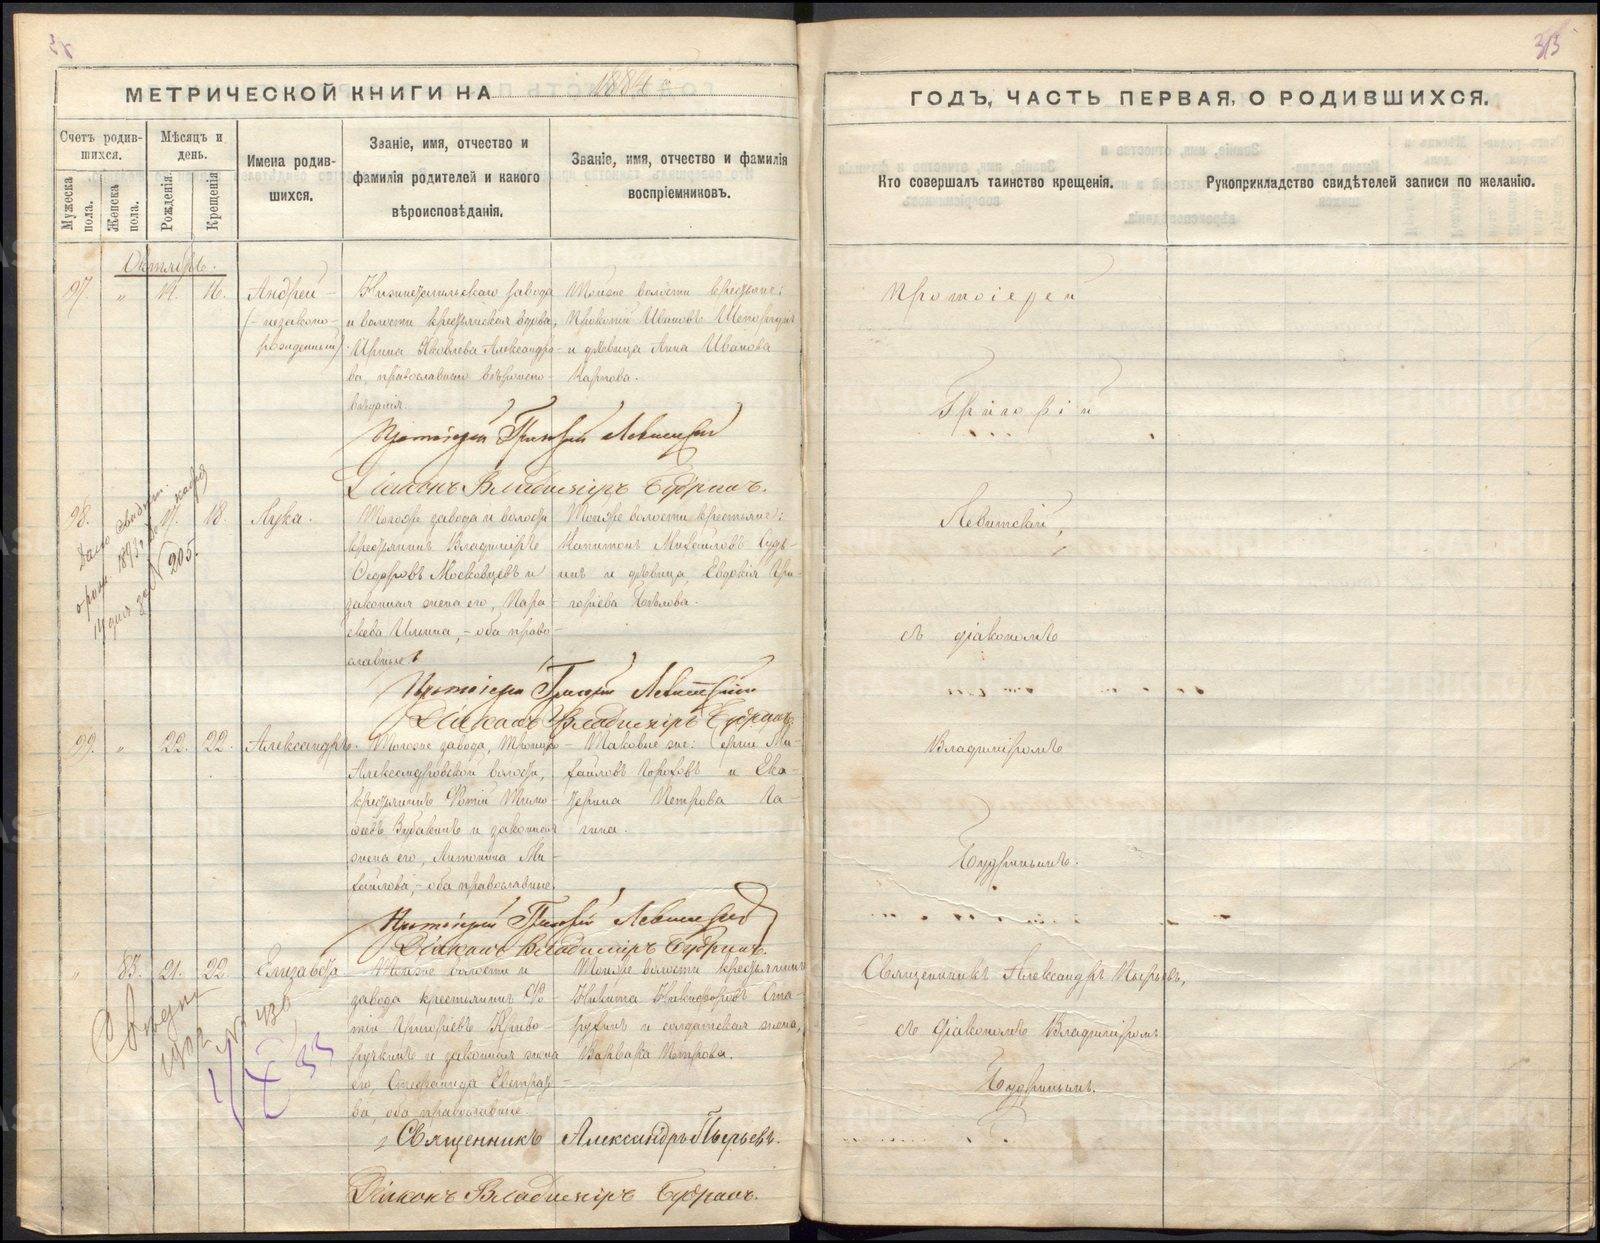 35
МЕТРИЧЕСКОЙ КНИГИ НА 1884
ГОДЪ, ЧАСТЬ ПЕРВАЯ, О РОДИВШИХСЯ.
Счетъ родив-
шихся.
Мужеска
пола.
Женска
пола.
Мѣсяцъ и
день.
Рожденія.
Крещенія
Имена родив-
шихся.
Званіе, имя, отчество и
фамилія родителей и какого
вѣроисповѣданія.
Званіе, имя, отчество и фамилія
воспріемниковъ.
Кто совершалъ таинство крещенія.
Рукоприкладство свидѣтелей записи по желанію.
Октябрь.
97. " 14. 16.
Андрей
(незаконо-
рожденный)
Нижнетагильскаго завода
и волости крестьянская вдова,
Ирина Яковлева Александро-
ва, православнаго вѣроиспо-
вѣданія.
Тойже волости крестьяне:
Прокопій Ивановъ
и дѣвица Анна Иванова
Карпова.
Протоіерей
Григорій
Левитскій,
съ діакономъ
Владиміромъ
Будринымъ.
Протоіерей Григорій Левитскій
Діаконъ Владиміръ Будринъ.
98. 17. 18.
Лука.
Дано свидѣт.
1893
14 дня за № 205.
Тогоже завода и волости
крестьянинъ Владиміръ
Ѳедоровъ Московцевъ и
законная жена его, Пара-
скева Ильина, - оба право-
славные
Тойже волости крестьяне:
Капитонъ Михаиловъ
и дѣвица, Евдокія Гри-
горіева Бѣлова.
Протоіерей Григорій Левитскій
Діаконъ Владиміръ Будринъ
99. " 22. 22.
Александръ.
Тогоже завода, Троицко-
Александровской волости,
крестьянинъ Фотій Тимо-
ѳеевъ Зубакинъ и законная
жена его, Антонина Ми-
хайлова, - оба православные.
Таковые же: Сергій Ми-
хайловъ Гороховъ и Ека-
терина Петрова Га-
гина.
Протоіерей Григорій Левитскій
Діаконъ Владиміръ Будринъ.
" 83. 21. 22.
Елизавета
Тойже волости и
завода крестьянинъ Фо-
тій Григорьевъ Криво-
ручкинъ и законная жена
его, Стефанида Евстраті-
ва, оба православные
Тойже волости крестьянинъ
Никита Никифоровъ Ста-
рухинъ и солдатская жена,
Варвара Петрова.
Священникъ Александръ Пырьевъ,
съ діакономъ Владиміромъ
Будринымъ.
Священникъ Александръ Пырьевъ.
Діаконъ Владиміръ Будринъ.